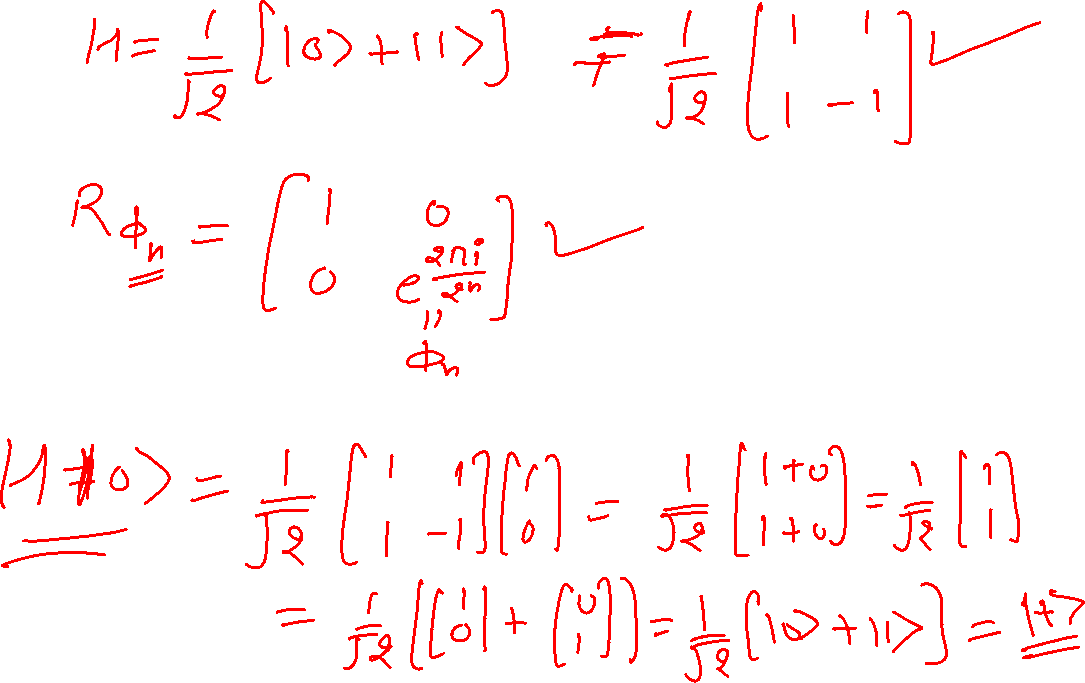 H = 1/√2 [|0> + |1>] ≠ 1/√2 [1 1; 1 -1] ✓
R_ϕn = [1 0; 0 e^(2πi/2^n)] ✓
"
ϕn
H|0> = 1/√2 [1 1; 1 -1][1; 0] = 1/√2 [1+0; 1+0] = 1/√2 [1; 1]
= 1/√2 [[1; 0] + [0; 1]] = 1/√2 [|0> + |1>] = |+>